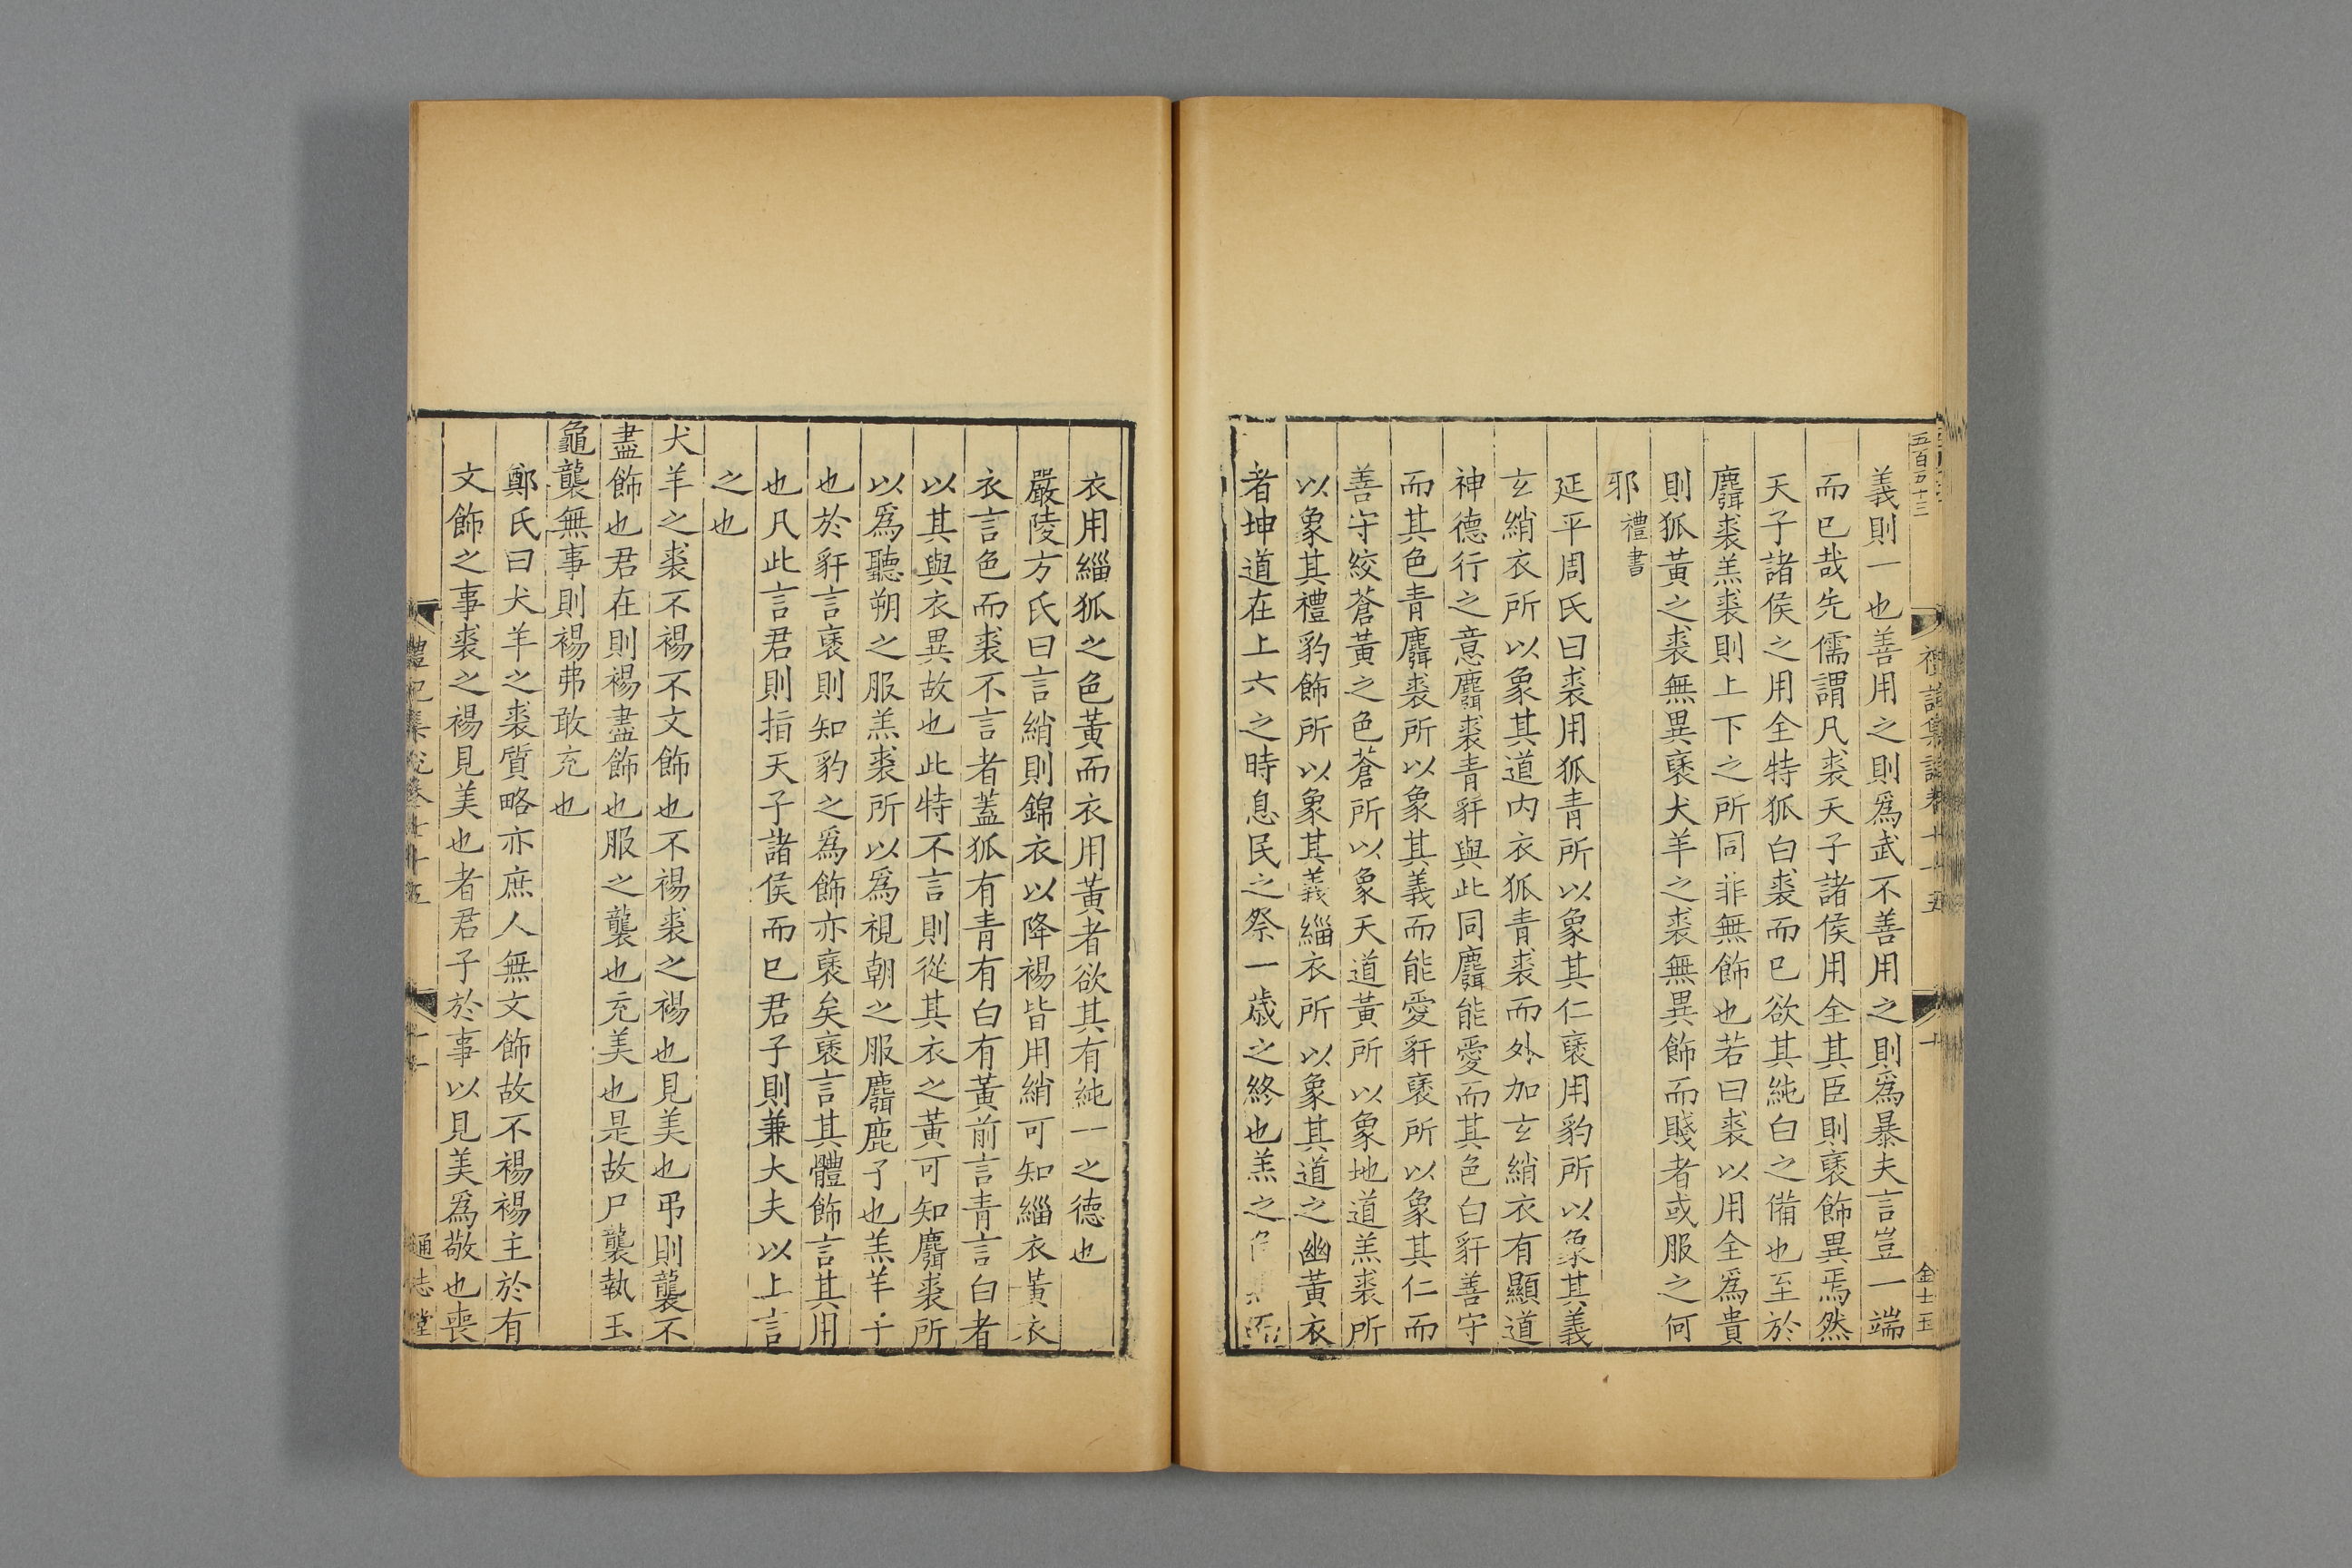 五百五十三
金士玉
義則一也善用之則爲武不善用之則爲暴夫言豈一端
而已哉先儒謂凡裘天子諸侯用全其臣則褎飾異焉然
天子諸侯之用全特狐白裘而已欲其純白之備也至於
麛裘羔裘則上下之所同非無飾也若曰裘以用全爲貴
則狐黃之裘無異褎犬羊之裘無異飾而賤者或服之何
邪禮書
延平周氏曰裘用狐青所以象其仁褎用豹所以象其義
玄綃衣所以象其道内衣狐青裘而外加玄綃衣有顯道
神德行之意麛裘青豻與此同麛能愛而其色白豻善守
而其色青麛裘所以象其義而能愛豻褎所以象其仁而
善守絞蒼黃之色蒼所以象天道黃所以象地道羔裘所
以象其禮豹飾所以象其義緇衣所以象其道之幽黃衣
者坤道在上六之時息民之祭一歲之終也羔之
衣用緇狐之色黃而衣用黃者欲其有純一之德也
嚴陵方氏曰言綃則錦衣以降裼皆用綃可知緇衣黃衣
衣言色而裘不言者蓋狐有青有白有黃前言青言白者
以其與衣異故也此特不言則從其衣之黃可知麛裘所
以爲聽朔之服羔裘所以爲視朝之服麛鹿子也羔羊子
也於豻言褎則知豹之爲飾亦褎矣褎言其體飾言其用
也凡此言君則指天子諸侯而已君子則兼大夫以上言
之也
犬羊之裘不裼不文飾也不裼裘之裼也見美也弔則襲不
盡飾也君在則裼盡飾也服之襲也充美也是故尸襲執玉
龜襲無事則裼弗敢充也
鄭氏曰犬羊之裘質略亦庶人無文飾故不裼裼主於有
文飾之事裘之裼見美也者君子於事以見美爲敬也喪
禮記集說卷七十五
通志堂